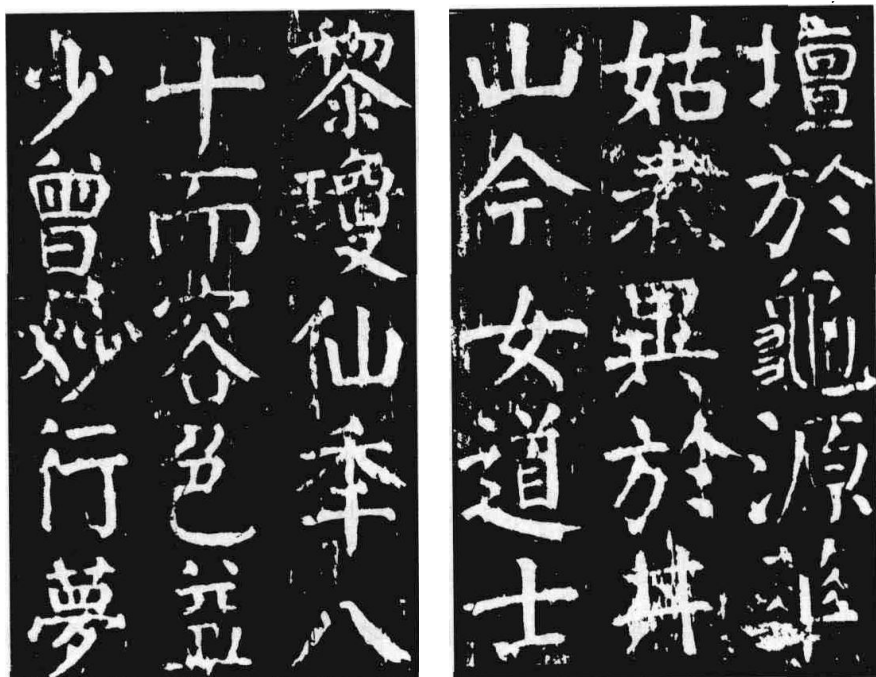 壇於龜源華
姑表異於井
山今女道士
黎瓊仙秊八
十而容色益
少曾妙行夢